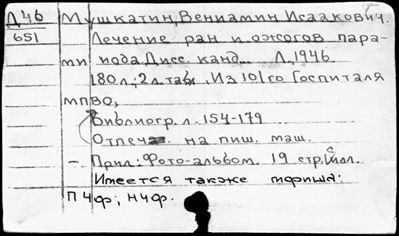 Д46 Мушкатин, Вениамин Исаакович.
651 Лечение ран и ожогов пара-
ми иода Дисс. канд... Л., 1946
180 л; 2 л. табл. Из 101го Госпиталя
МПВО,
Библиогр. л. 154-179
Отпеч. на пиш. маш.
- Прил: Фото-альбом. 19 стр. с илл.
Имеется также мфиша:
П Чф; НЧф.